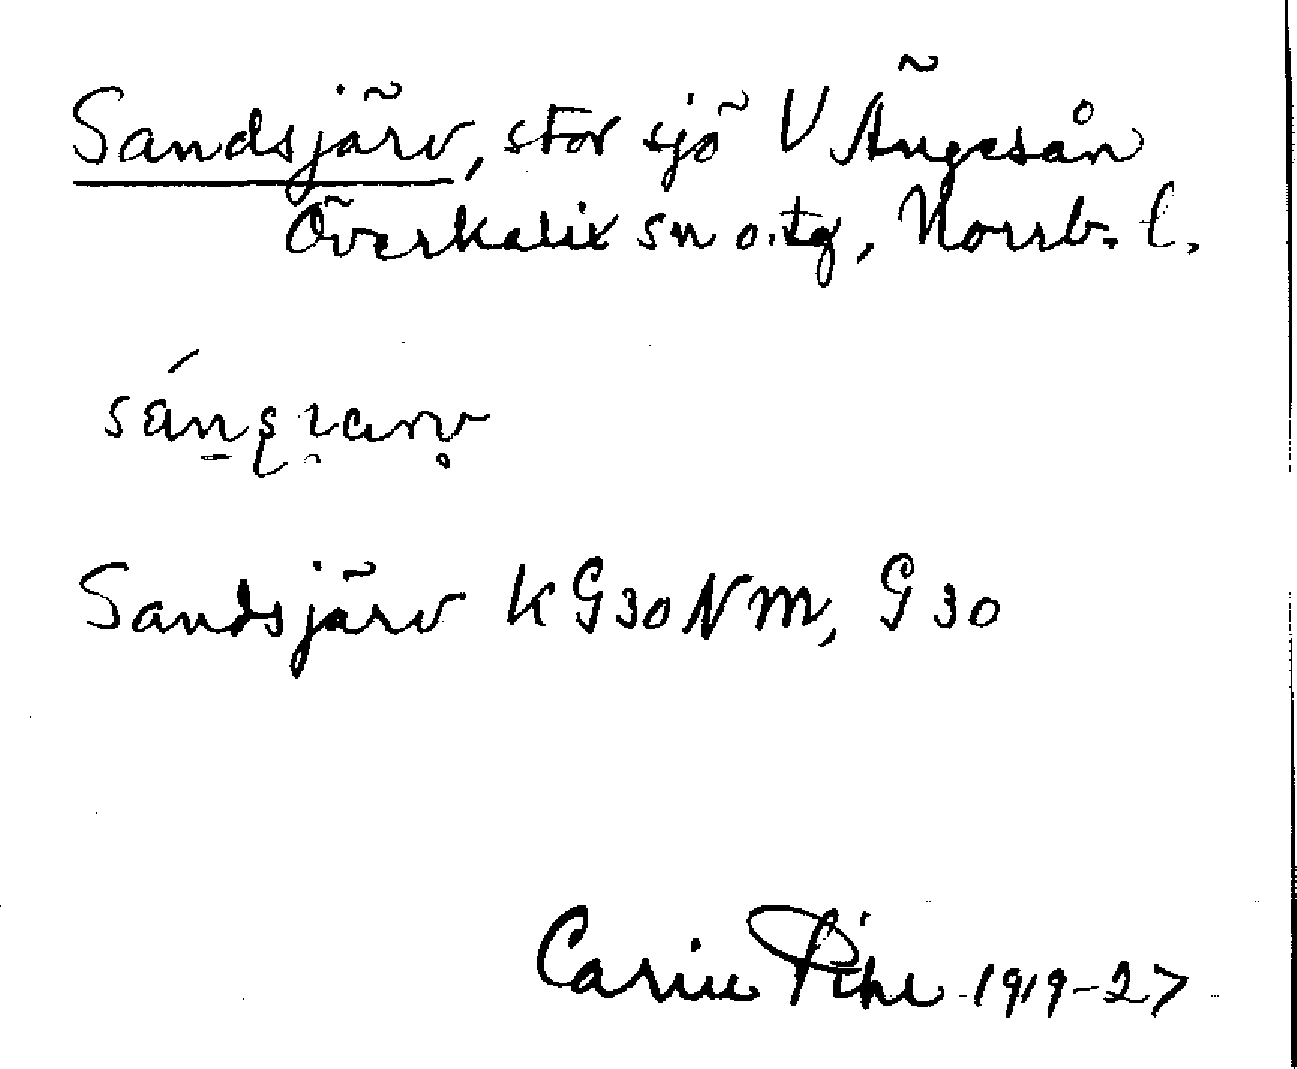 Sandsjärv, stor sjö V Ängesån
Överkalix sn o. tg, Norrb. l.
Sandsjärv KG30NM, G30
Carin Pihl 1919-27